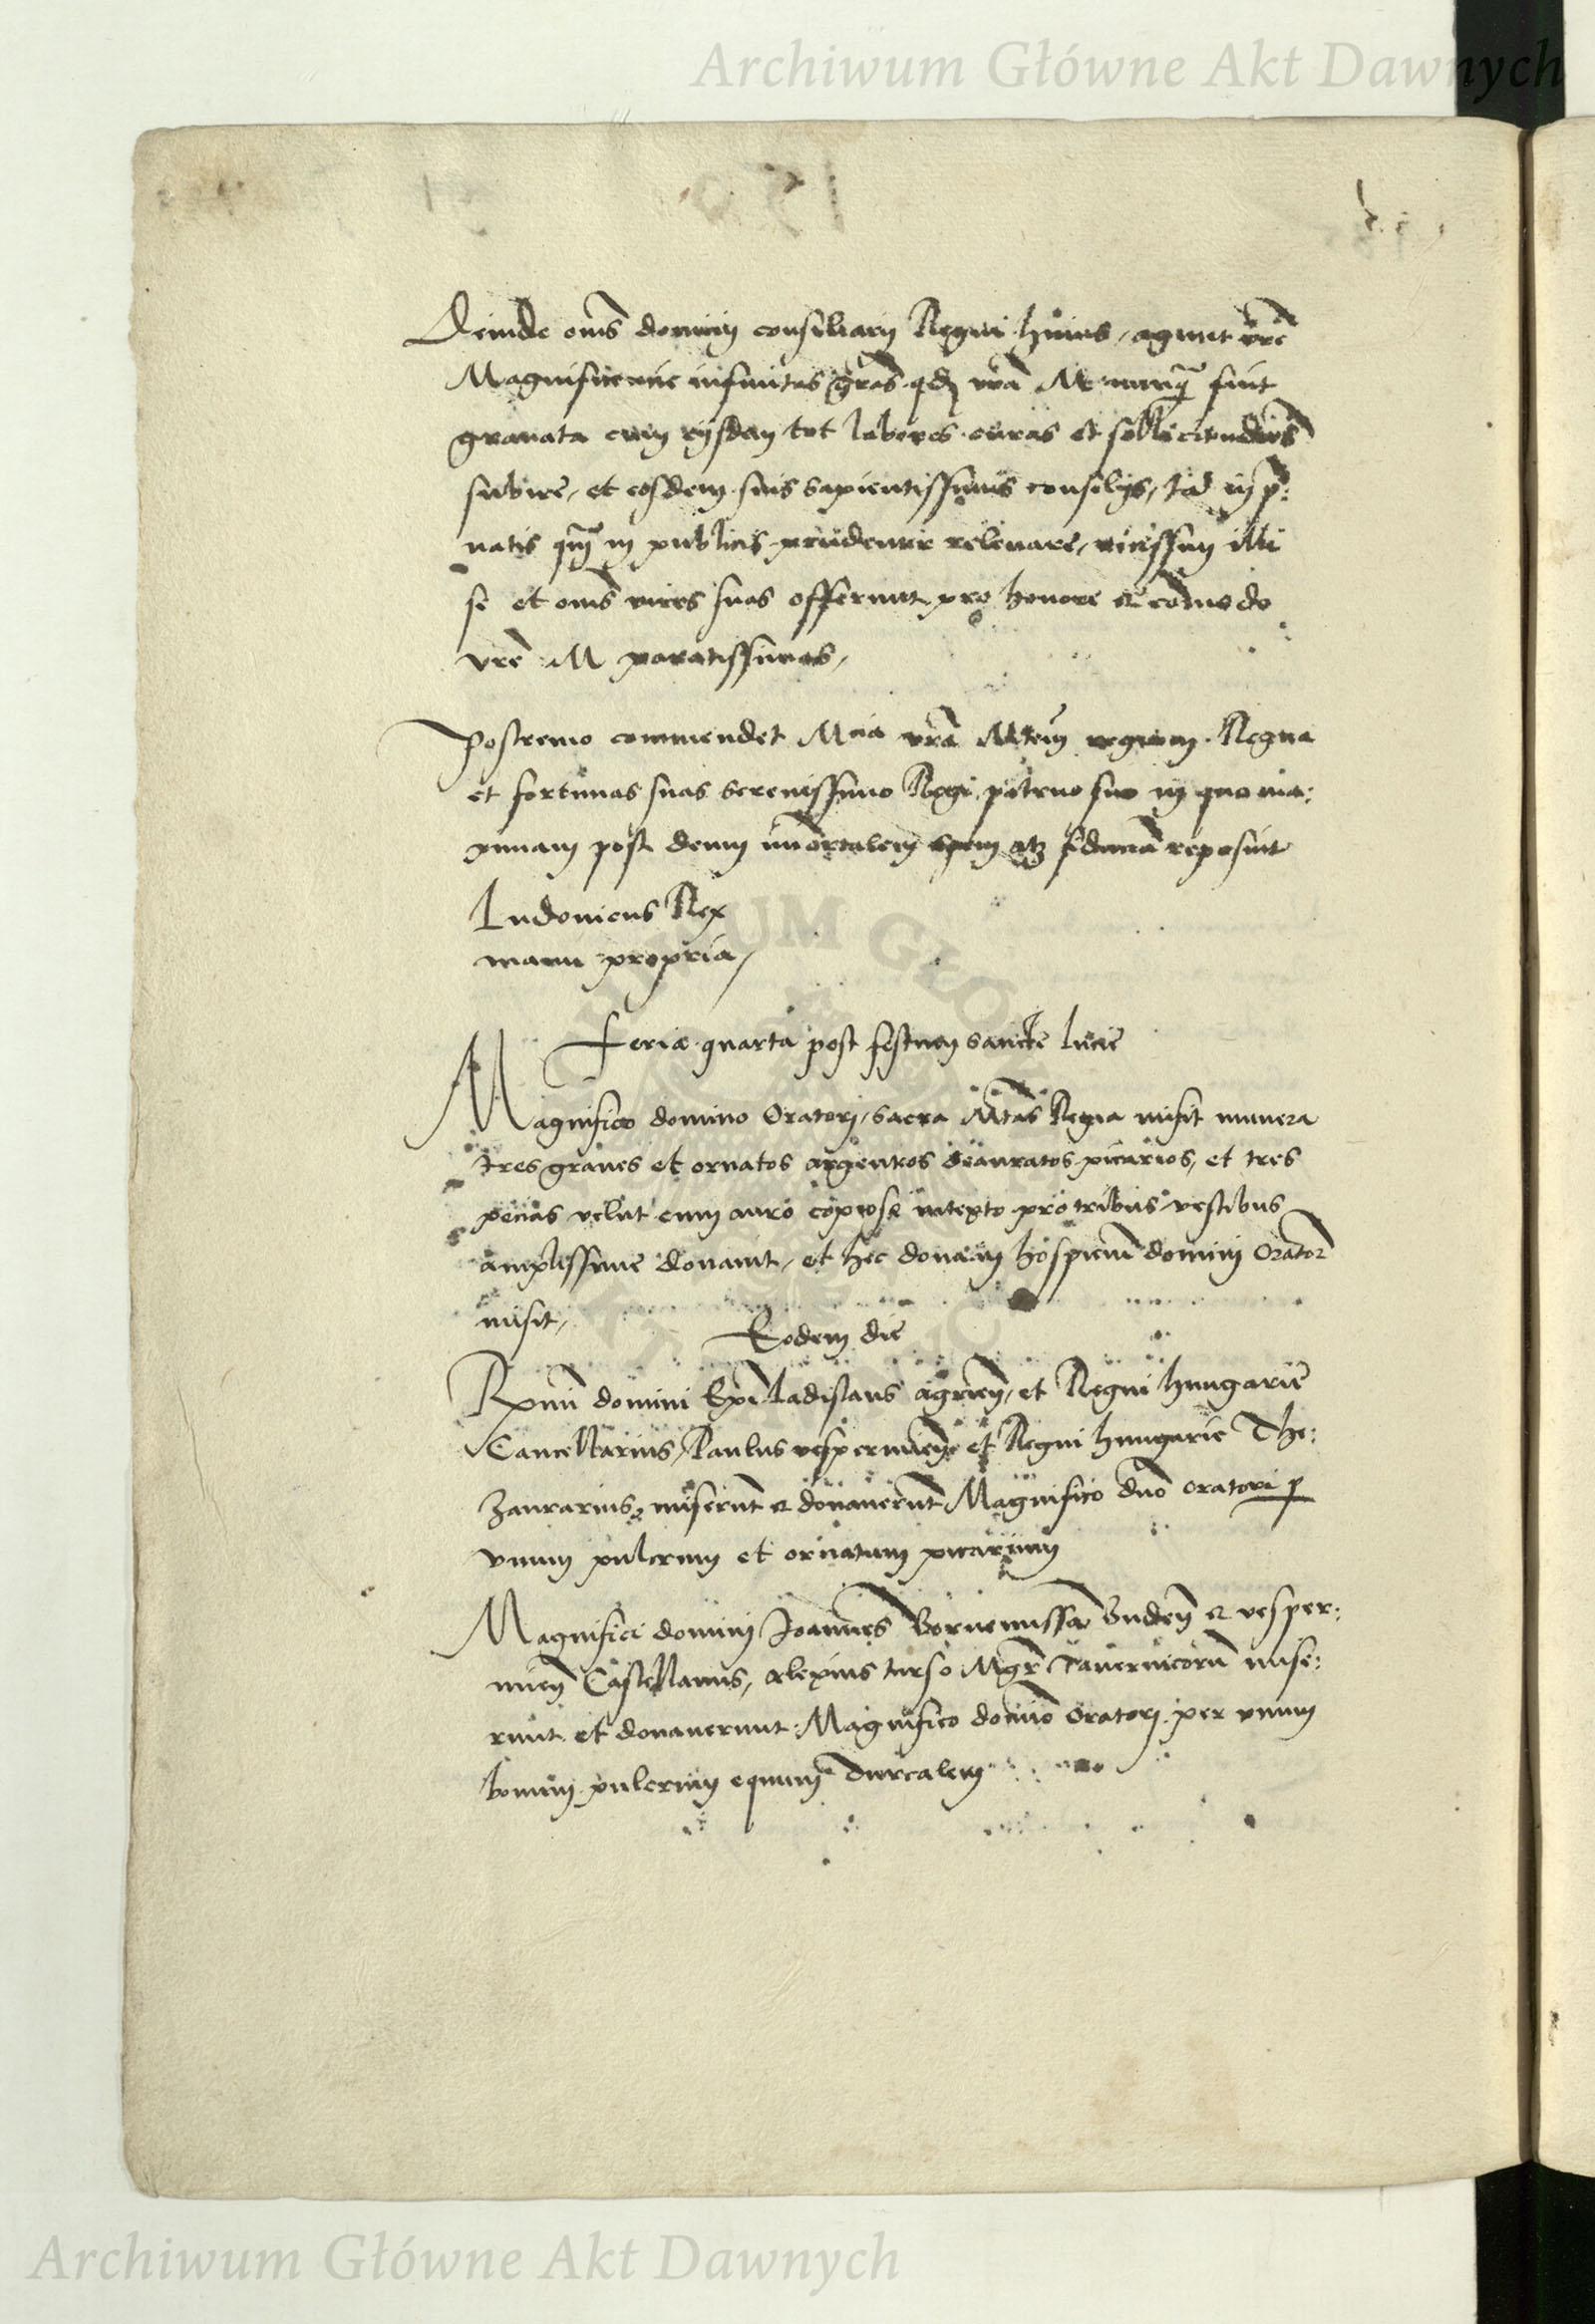 Archiwum Główne Akt Dawnych
Deinde oms̄ dominj consiliarij Regni huius, agunt vrē
Magnificencie infinitas grās. qđ vrā M. nunq̄ sint
grauata cum eijsdem tot labores. curas et sollicitudines
subire, et eosdem suis sapientissimis consilijs, tā in p:
uatis qm̄ in publicis prudenter releuare, vicissim illi
se et oms̄ vires suas offerunt pro honore et cōmodo
vrē M paratissimas,
Postremo commendet Mcia vrā Mtem̄ regiam. Regna
et fortunas suas Serenissimo Regi, patruo suo in quo ma:
ximam post deum im̄ortalem spem atq3 fiduciā reposuit
Ludouicus Rex
manu propria,
Feria quarta post festum sancte lucie
Magnifico domino Oratorj, sacra Mtas̄ Regia misit munera
tres graues et ornatos argenteos deauratos picarios, et tres
pecias velut cum auro copiose intexto pro tribus vestibus
amplissime donauit, et hec dona in hospiciū dominj Orator̄
misit,
Eodem die
Rx̄mi domini Ep̄i. ladislaus agrien̄, et Regni hungarie
Cancellarius, Paulus vesperimien̄ et Regni hungarie The:
zaurarius, miserūt et donauerūt Magnifico dn̄o oratori p
vnum pulcrum et ornatum picarium
Magnifici dominj Joannes Bornemissa Buden̄ et vesper:
mien̄ Castellanus, alexius turso Mgr̄ Tauernicorū mise:
runt et donauerunt Magnifico dominō Oratorj per vnum
bonum pulcrum equum Turcalem
Archiwum Główne Akt Dawnych